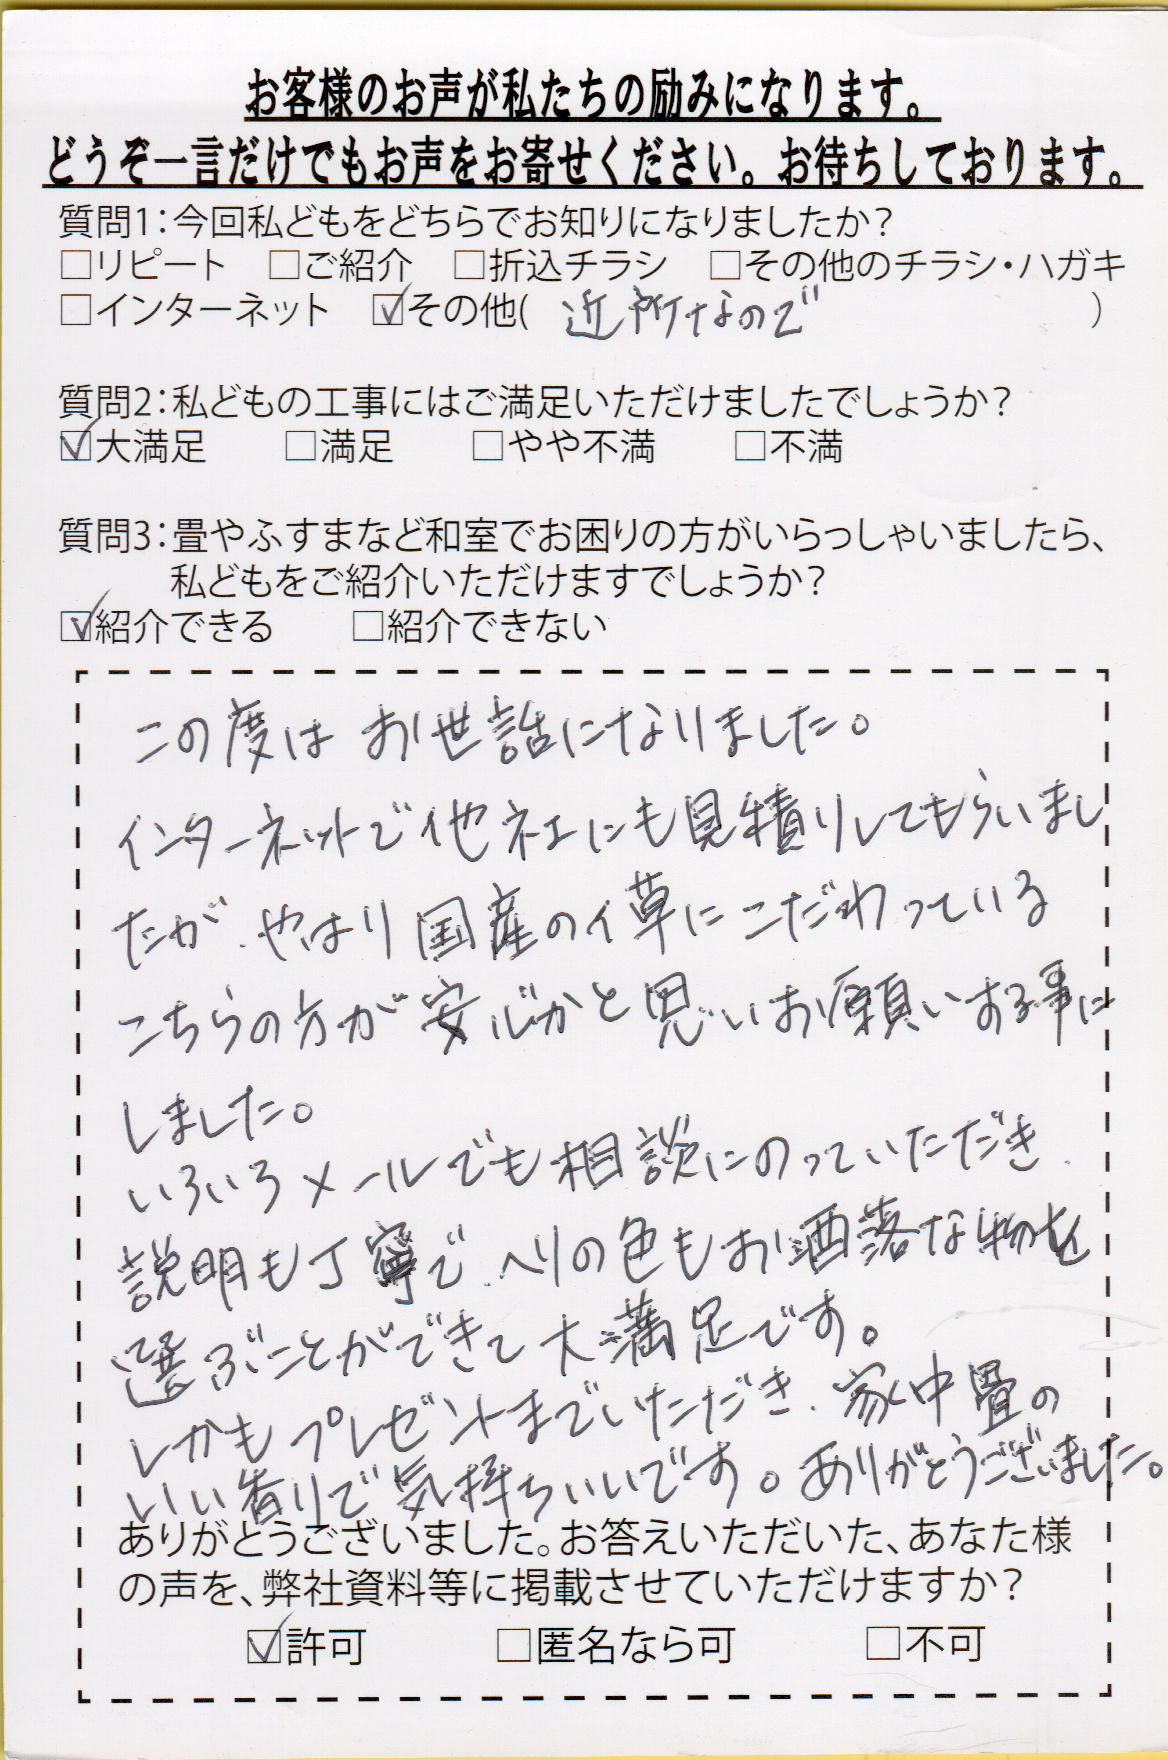 お客様のお声が私たちの励みになります。
どうぞ一言だけでもお声をお寄せください。お待ちしております。
質問1:今回私どもをどちらでお知りになりましたか?
□リピート □ご紹介 □折込チラシ □その他のチラシ・ハガキ
□インターネット ☑その他( 近所なので )
質問2:私どもの工事にはご満足いただけましたでしょうか?
☑大満足 □満足 □やや不満 □不満
質問3:畳やふすまなど和室でお困りの方がいらっしゃいましたら、
私どもをご紹介いただけますでしょうか?
☑紹介できる □紹介できない
この度は お世話になりました。
インターネットで他社にも見積りしてもらいまし
たが、やはり国産のイ草にこだわっている
こちらの方が安心かと思いお願いする事に
しました。
いろいろメールでも相談にのっていただき、
説明も丁寧で、ヘリの色もお洒落な物を
選ぶことができて大満足です。
しかもプレゼントまでいただき、家中畳の
いい香りで気持ちいいです。ありがとうございました。
ありがとうございました。お答えいただいた、あなた様
の声を、弊社資料等に掲載させていただけますか?
☑許可 □匿名なら可 □不可